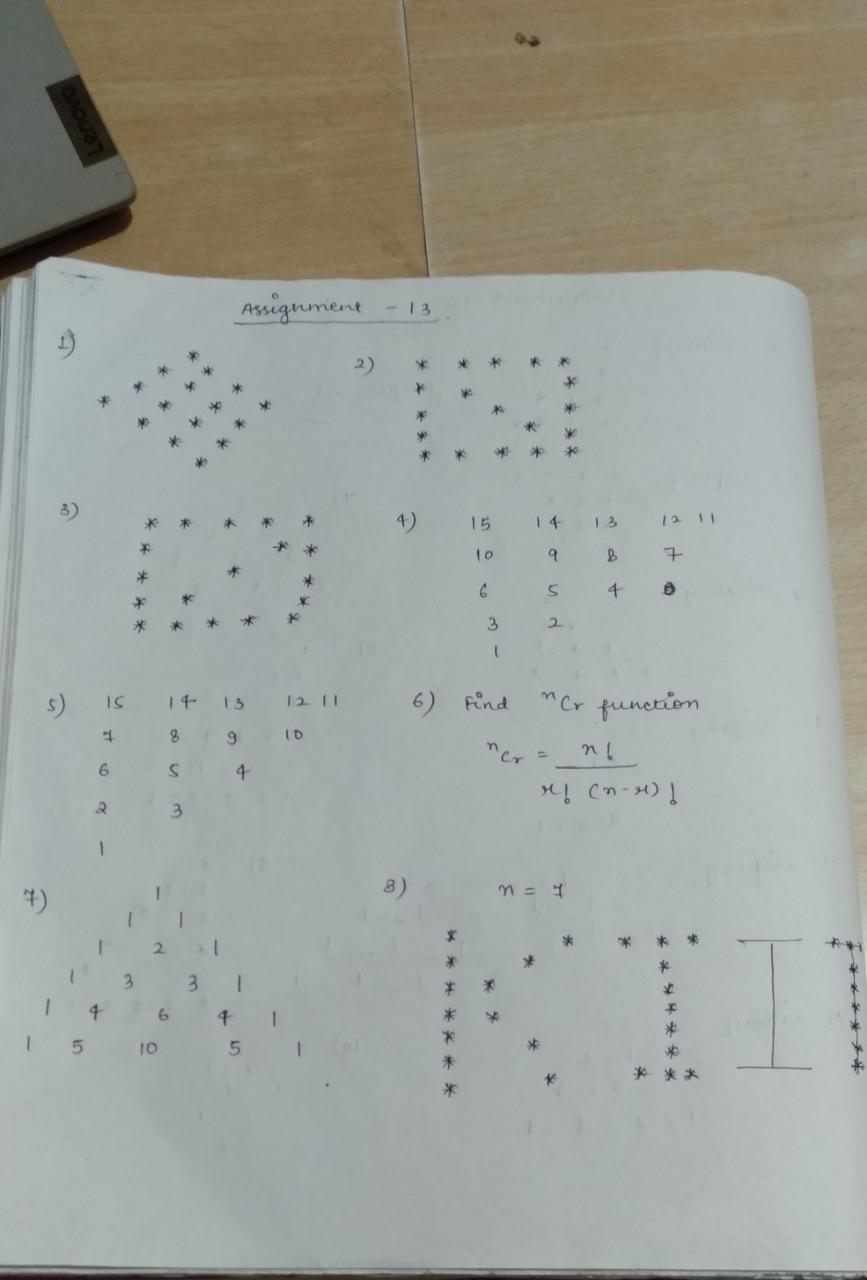 Lenovo
Assignment - 13.
1)
*
* *
* * *
* * * *
* * *
* *
*
2)
* * * * *
* * *
* * *
* * *
* * * * *
3)
* * * * *
* * *
* * *
* * *
* * * * *
4)
15 14 13 12 11
10 9 8 7
6 5 4
3 2
1
5)
15 14 13 12 11
7 8 9 10
6 5 4
2 3
1
6) Find nCr function
nCr = n!
r! (n-r)!
7)
1
1 1
1 2 1
1 3 3 1
1 4 6 4 1
1 5 10 5 1
8) n = 7
* * * * *
* * *
* * *
* * *
* * *
* *
* * * * *
I
* *
*
*
*
*
*
*